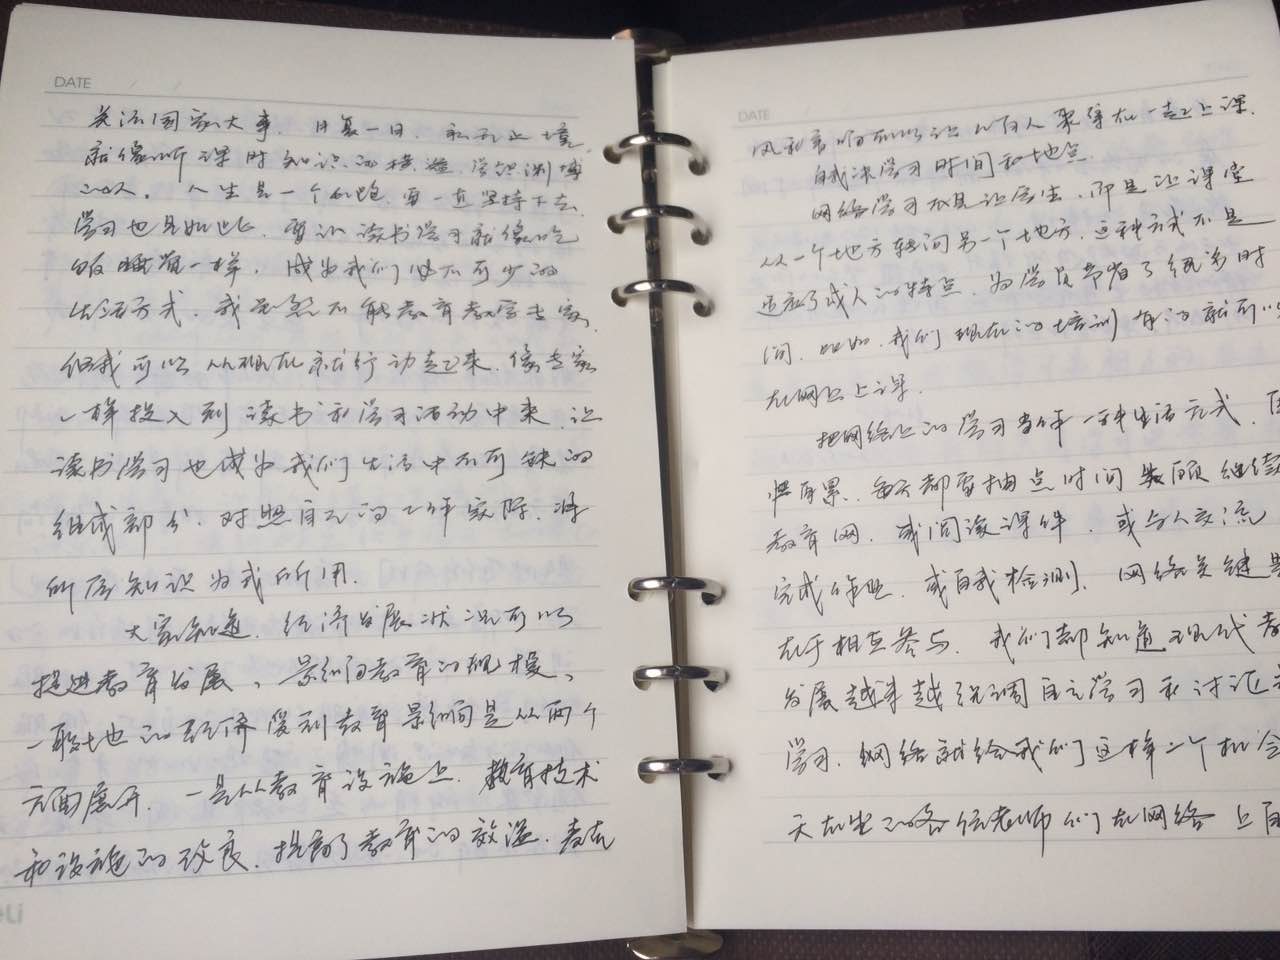 DATE
关注国家大事,日复一日,
就像听课时知识的
的人。人生是一个长跑,要一直坚持下去,
学习也是如此,要让读书学习就像吃
饭睡觉一样,成为我们必不可少的
生活方式。我虽然不能教育教学专家,
但我可以从现在就行动起来,像专家
一样投入到读书和学习活动中来,让
读书学习也成为我们生活中不可缺的
组成部分,对照自己的工作实际,将
所学知识为我所用。
大家知道,经济发展状况可以
促进教育发展、影响着教育的规模、
一般地的经济受到教育影响是从两个
方面展开,一是从教育设施上,教育技术
和设施的改良,提高了教育的效益,
eli
DATE
所以让 有人聚集在一起上课,
自我决学习时间和地点。
网络学习不是让学生,而是让课堂
从一个地方转向另一个地方,这种方式不是
适应了成人的特点,为学员节省了很多时
间,比如,我们现在的培训有的就可以
在网上上课。
把网络上的学习当作一种生活方式,
每天都要抽点时间 继续
教育网,或阅读课件,或与人交流
完成作业,或自我检测,网络关键是
在于相互参与,我们都知道现代教
发展越来越强调自主学习和讨论
学习,网络就给我们这样一个机会
天在坐的各位老师们在网络上